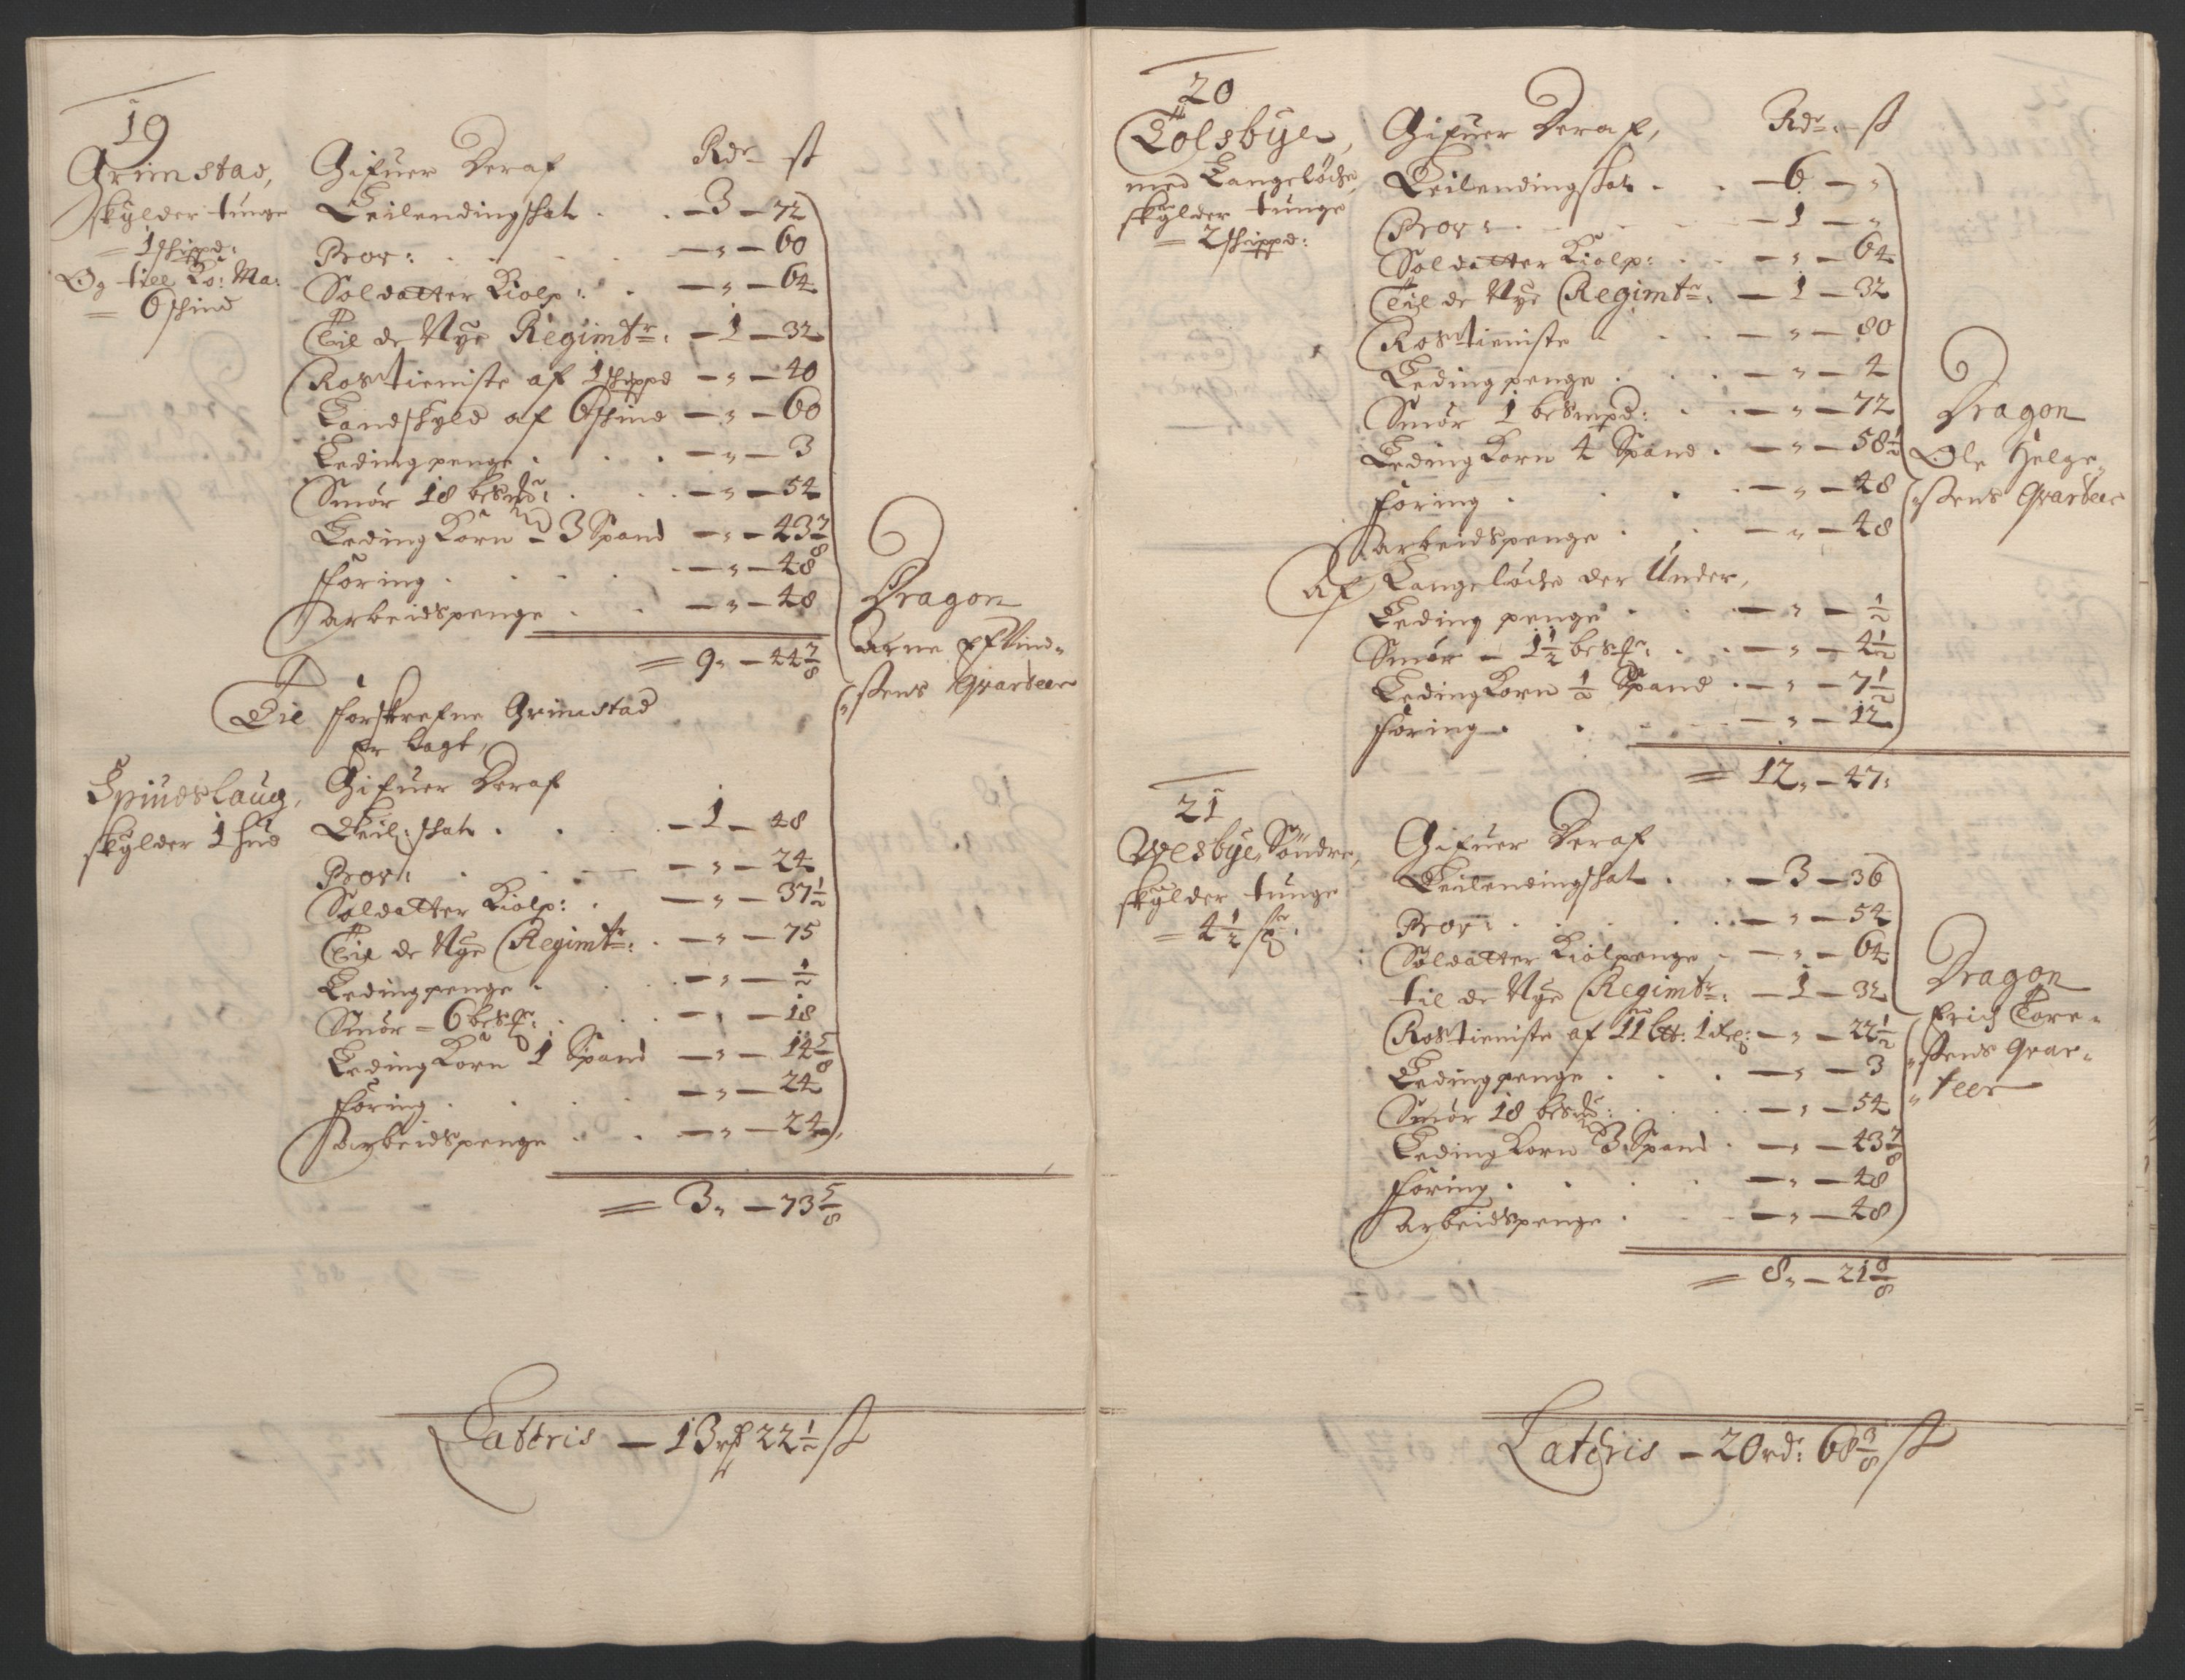 19
Grimstad,
skylder tunge
= 1 skippd:
Og till Ko: Ma:
= 6 skind
Gifuer Deraf Rdr — ss
Leilendingskat . . — 3 — 72
Prov: . . . — " — 60
Soldatter Kiolp: . — " — 64
Til de Nye Regimtr: — 1 — 32
Rostieniste af 1 skippd — " — 40
Landskyld af 6 skind — " — 60
Leding penge . . . — " — 3
Smør 18 besmr: . . — " — 54
Leding Korn = 3 Spand — " — 43 7/8
Foring . . . . — " — 48
Arbeidspenge . . — " — 48
= 9" — 44 7/8
Dragon
Arne Effvind=
"sens Qvarteer
Til Forskrefne Grimstad
er lagt,
Spiudslaug,
skylder 1 hud
Gifuer Deraf
Leil: skat . . . — 1 — 48
Prov: . . . — " — 24
Soldatter Kiolp: . — " — 37 1/2
Til de Nye Regimtr: . — " — 75
Leding penge . . . — " — 1/2
Smør = 6 besmr: . . — " — 18
Leding Korn 1 Spand — " — 14 5/8
Foring . . . . — " — 24
Arbeidspenge . . — " — 24
= 3" — 73 5/8
Lateris — 13 rdr 22 1/2 ss
20
Tolsbye,
med Langeløche
skylder tunge
= 2 skippd:
Gifuer Deraf, Rdr: — ss
Leilendingskat . . — 6 — "
Prov: . . . — 1 — "
Soldatter Kiolp: . . — " — 64
Til de Nye Regimtr: — 1 — 32
Rostieniste . . . — " — 80
Leding penge . . . — " — 4
Smør 1 besmpd: . . — " — 72
Leding Korn 4 Spand . — " — 58 1/2
Foring . . . — " — 48
Arbeidspenge . . — " — 48
Af Langeløche der Under,
Leding penge . . . — " — 1/2
Smør — 1 1/2 besmr: . . — " — 4 1/2
Leding Korn 1/2 Spand . — " — 7 1/2
Foring . . . — " — 12
= 12" — 47:
Dragon
Ole Helge=
"sens Qvarteer
21
Wesbye Søndre,
skylder tunge
= 4 1/2
Gifuer Deraf
Leilendingskat . . — 3 — 36
Prov: . . . . — " — 54
Soldatter Kiolpenge — " — 64
til de Nye Regimtr: — 1 — 32
Rostieniste af 11 — " — 22 1/2
Leding penge . . . — " — 3
Smør 18 besmr: . . — " — 54
Leding Korn 3 Spand . — " — 43 7/8
Foring . . . . — " — 48
Arbeidspenge . . — " — 48
= 8" — 21 3/8
Dragon
Erich Tore=
"sens Qvar=
"teer
Lateris — 20 rdr: 68 3/8 ss